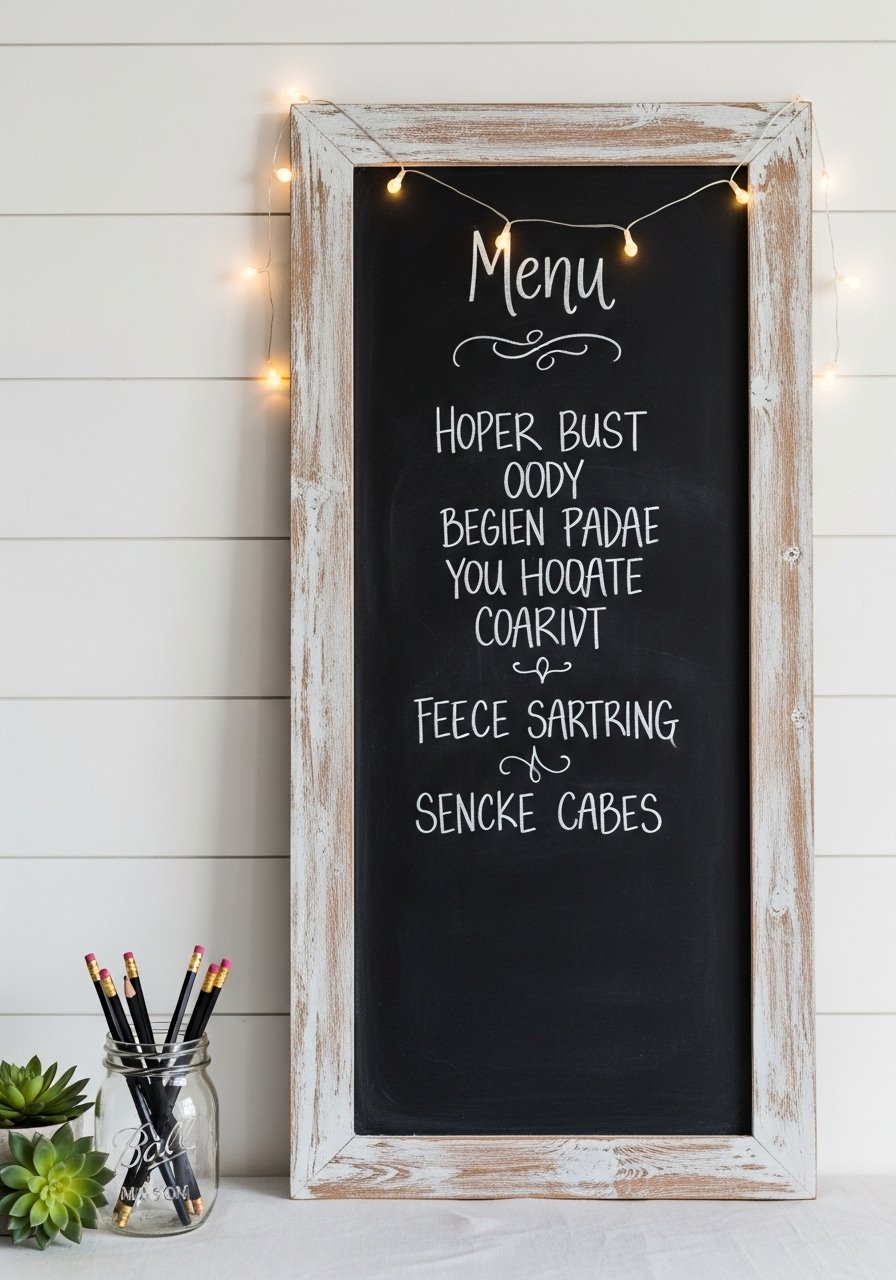 Menu
HOPER BUST
OODY
BEGIEN PADAE
YOU HOQATE
COARIVT
FEECE SARTRING
SENCKE CABES
Ball
MASON